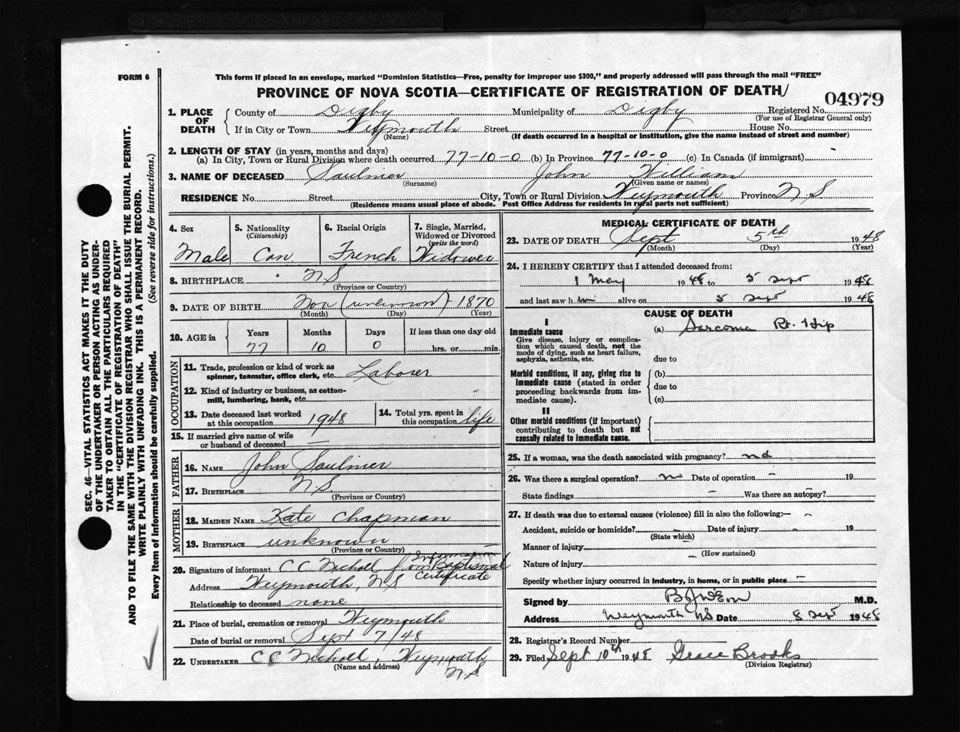 FORM 6
This form if placed in an envelope, marked "Dominion Statistics—Free, penalty for improper use $300," and properly addressed will pass through the mail "FREE"
PROVINCE OF NOVA SCOTIA—CERTIFICATE OF REGISTRATION OF DEATH/
04979
1. PLACE OF DEATH { County of Digby Municipality of Digby Registered No.
(For use of Registrar General only)
If in City or Town Weymouth Street House No.
(Name) (If death occurred in a hospital or institution, give the name instead of street and number)
2. LENGTH OF STAY (in years, months and days)
(a) In City, Town or Rural Division where death occurred 77-10-0 (b) In Province 77-10-0 (c) In Canada (if immigrant)
3. NAME OF DECEASED Saulnier John William
(Surname) (Given name or names)
RESIDENCE No. Street City, Town or Rural Division Weymouth Province N S
(Residence means usual place of abode. Post Office Address for residents in rural parts not sufficient)
4. Sex Male
5. Nationality (Citizenship) Can
6. Racial Origin French
7. Single, Married, Widowed or Divorced (write the word) Widower
8. BIRTHPLACE N S
(Province or Country)
9. DATE OF BIRTH Nov (unknown) 1870
(Month) (Day) (Year)
10. AGE in { Years Months Days If less than one day old
77 10 0 hrs. or min.
OCCUPATION
11. Trade, profession or kind of work as spinner, teamster, office clerk, etc. Laborer
12. Kind of industry or business, as cotton-mill, lumbering, bank, etc.
13. Date deceased last worked at this occupation 1948
14. Total yrs. spent in this occupation life
15. If married give name of wife or husband of deceased —
FATHER
16. NAME John Saulnier
17. BIRTHPLACE N S.
(Province or Country)
MOTHER
18. MAIDEN NAME Kate Chapman
19. BIRTHPLACE unknown
(Province or Country)
20. Signature of informant C C Nicholl from Baptismal Certificate
Address Weymouth, N S
Relationship to deceased none
21. Place of burial, cremation or removal Weymouth
Date of burial or removal Sept 7/48
22. UNDERTAKER C C Nicholl, Weymouth N.S.
(Name and address)
MEDICAL CERTIFICATE OF DEATH
23. DATE OF DEATH Sept 5th 1948
(Month) (Day) (Year)
24. I HEREBY CERTIFY that I attended deceased from:
1 May 1948 to 5 Sept 1948
and last saw him alive on 5 Sept 1948
CAUSE OF DEATH
I
Immediate cause (a) Sarcoma Rt. Hip
Give disease, injury or complication which caused death, not the mode of dying, such as heart failure, asphyxia, asthenia, etc.
due to
Morbid conditions, if any, giving rise to immediate cause (stated in order proceeding backwards from immediate cause).
(b)
due to
(c)
II
Other morbid conditions (if important) contributing to death but not causally related to immediate cause.
25. If a woman, was the death associated with pregnancy?
26. Was there a surgical operation? no Date of operation — 19
State findings — Was there an autopsy? —
27. If death was due to external causes (violence) fill in also the following:— —
Accident, suicide or homicide? — Date of injury — 19
(State which)
Manner of injury —
(How sustained)
Nature of injury —
Specify whether injury occurred in industry, in home, or in public place —
Signed by M.D.
Address Weymouth NS Date 8 Sept 1948
28. Registrar's Record Number
29. Filed Sept 10th 1948 Grace Brooks
(Division Registrar)
SEC. 46—VITAL STATISTICS ACT MAKES IT THE DUTY
OF THE UNDERTAKER OR PERSON ACTING AS UNDER-
TAKER TO OBTAIN ALL THE PARTICULARS REQUIRED
IN THE "CERTIFICATE OF REGISTRATION OF DEATH"
AND TO FILE THE SAME WITH THE DIVISION REGISTRAR WHO SHALL ISSUE THE BURIAL PERMIT.
WRITE PLAINLY WITH UNFADING INK. THIS IS A PERMANENT RECORD.
Every item of information should be carefully supplied. (See reverse side for instructions.)